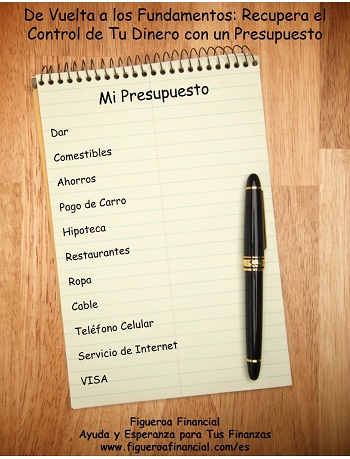 De Vuelta a los Fundamentos: Recupera el
Control de Tu Dinero con un Presupuesto
Mi Presupuesto
Dar
Comestibles
Ahorros
Pago de Carro
Hipoteca
Restaurantes
Ropa
Cable
Teléfono Celular
Servicio de Internet
VISA
Figueroa Financial
Ayuda y Esperanza para Tus Finanzas
www.figueroafinancial.com/es